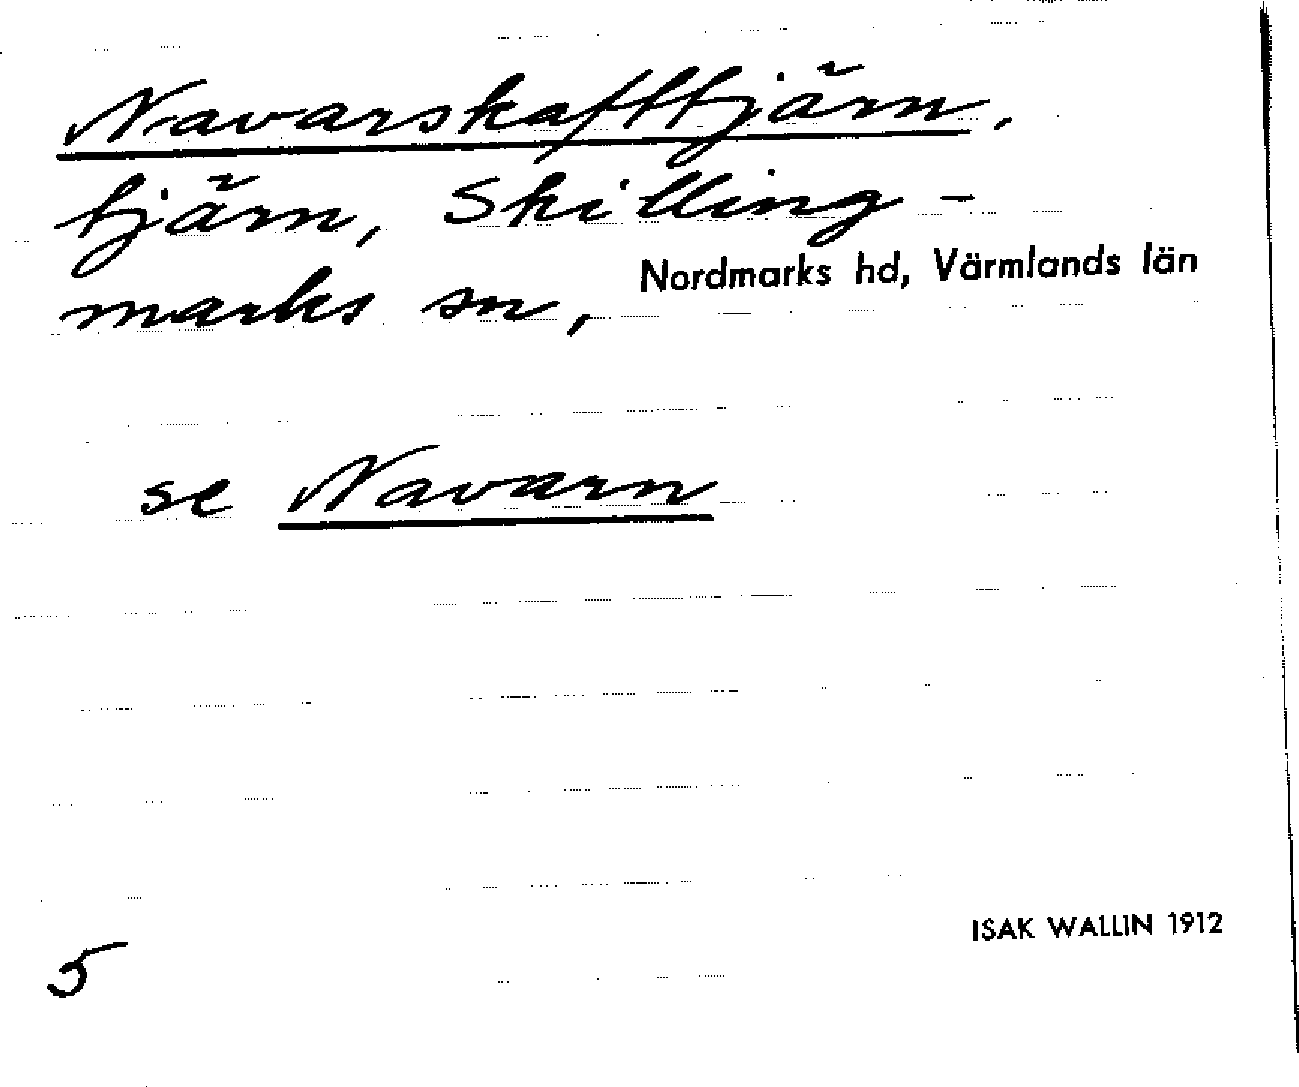 Navarskafttjärn,
tjärn, Skilling-
marks sn, Nordmarks hd, Värmlands län
se Navarn
ISAK WALLIN 1912
5